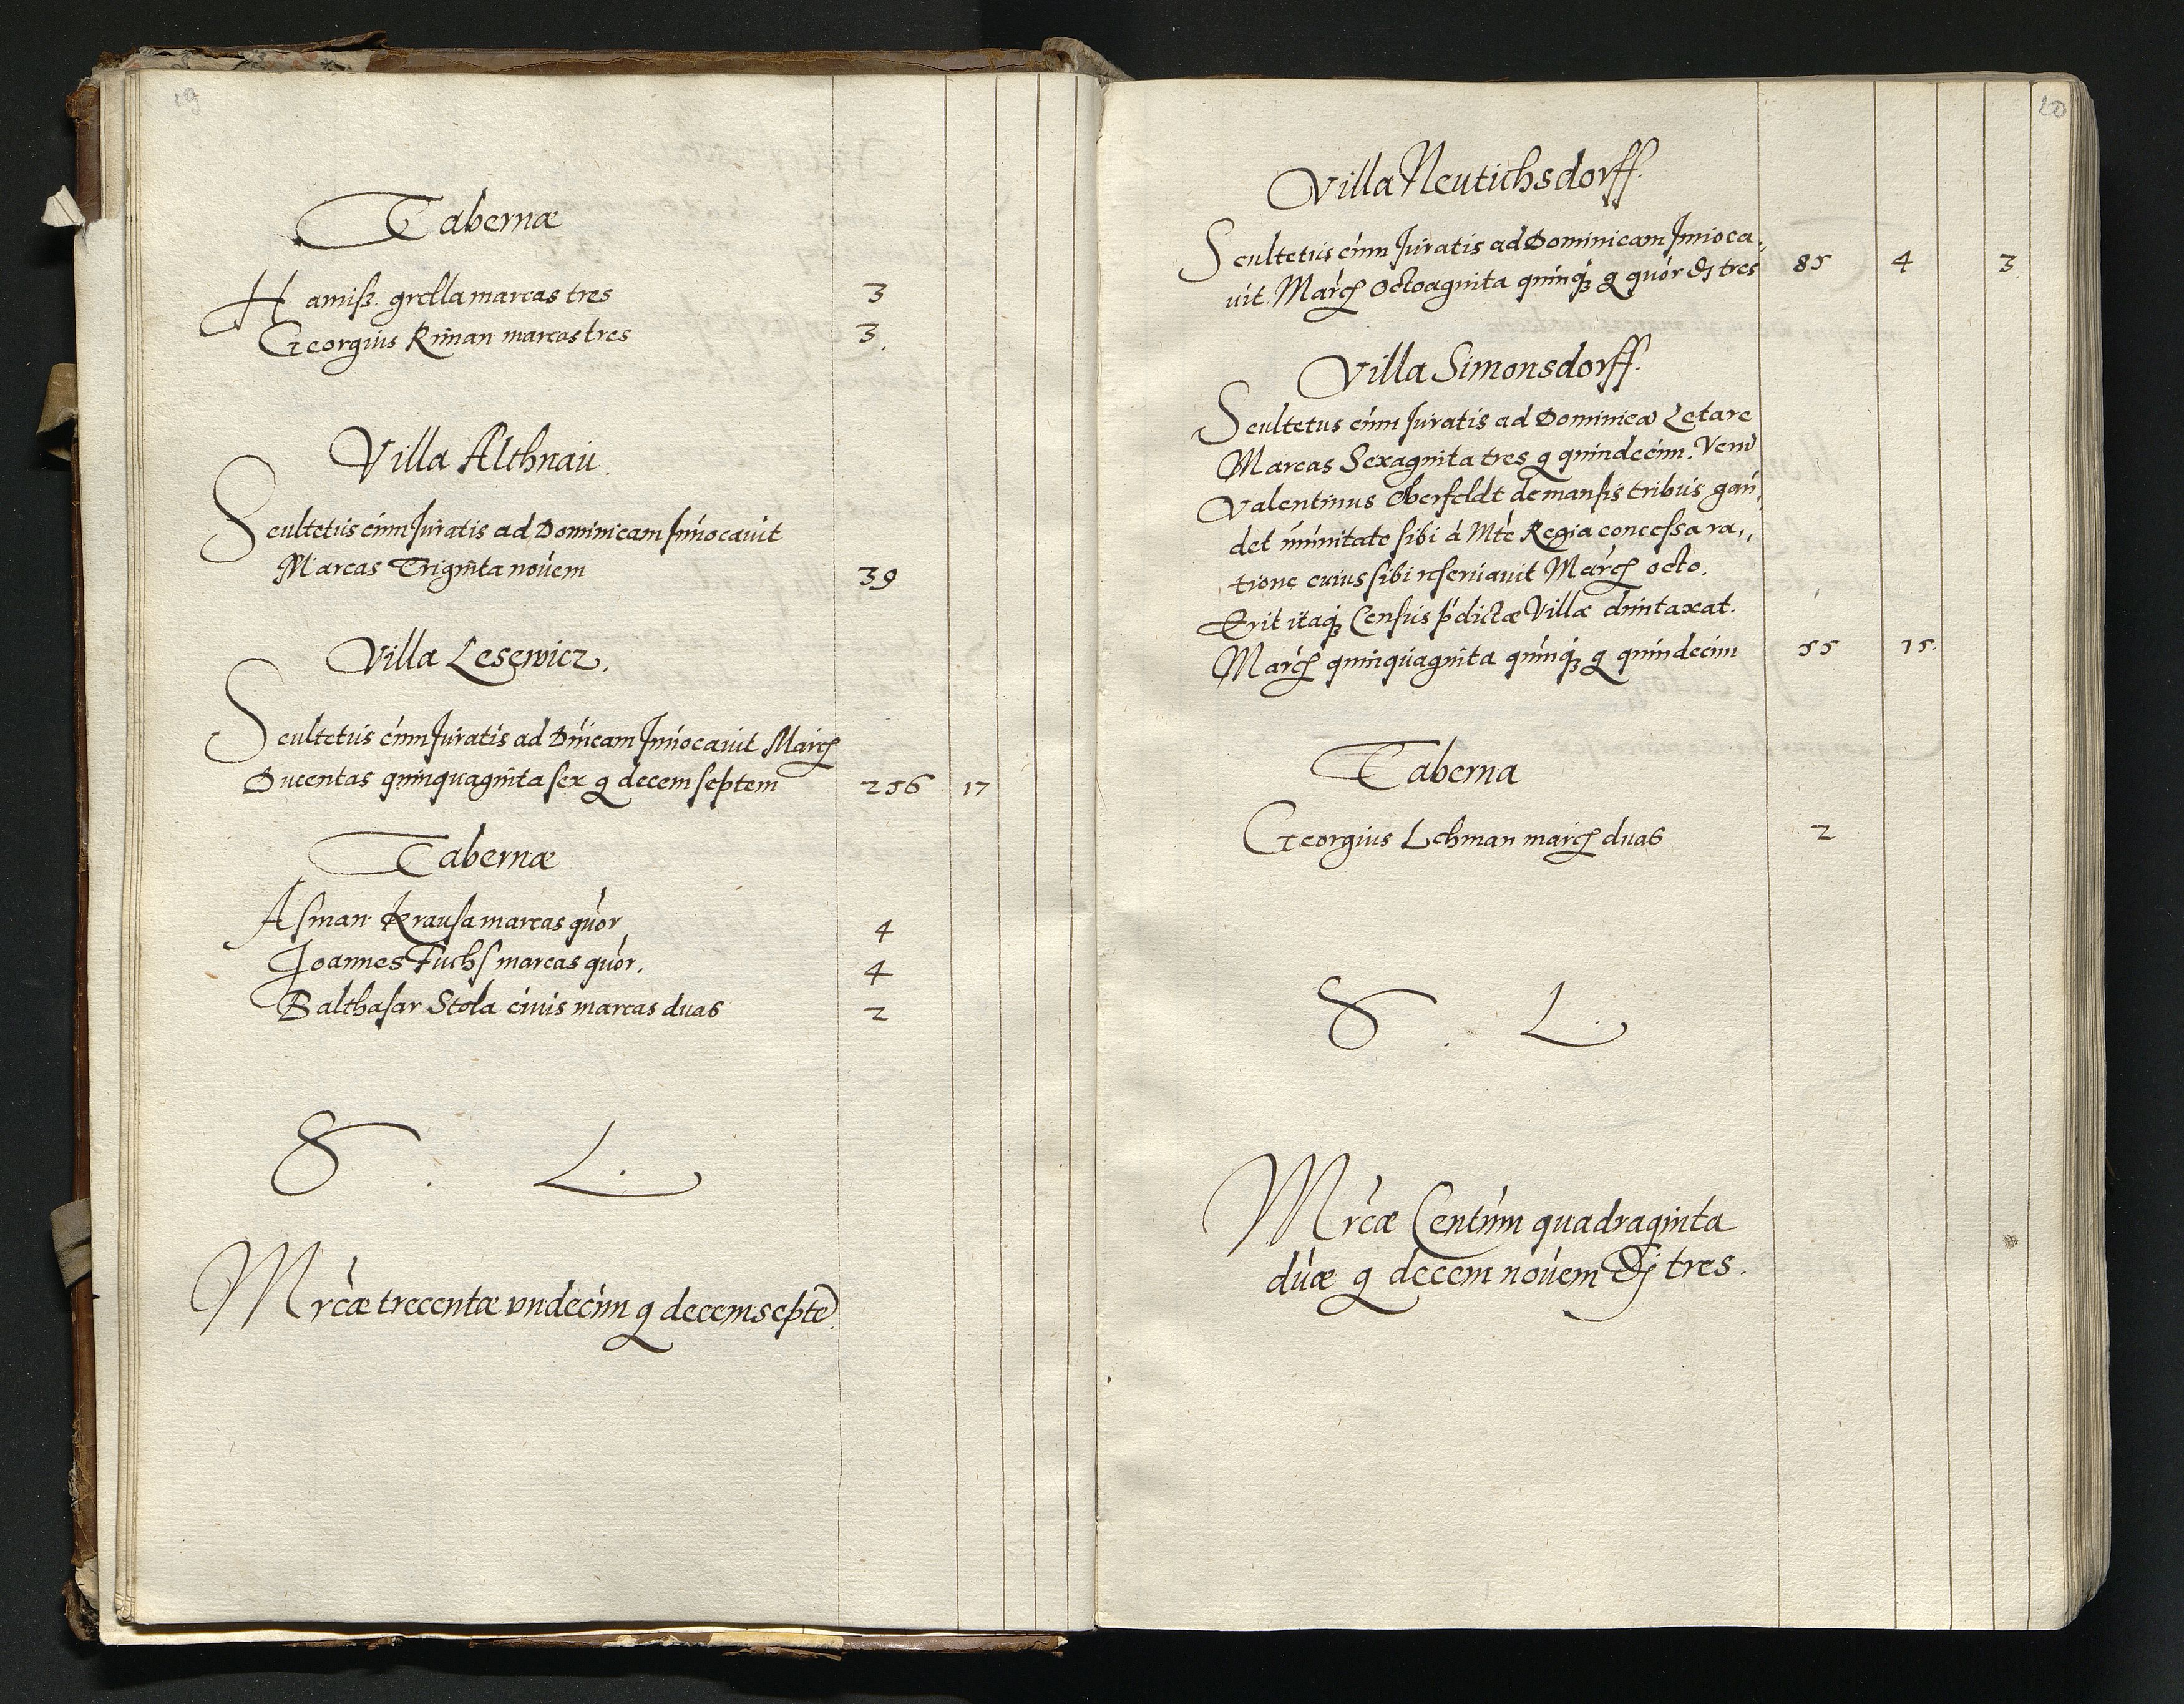 19
Tabernæ
Hamiß grolla marcas tres 3
Georgius Riman marcas tres 3.
Villa Althnaú.
Scultetus cúm Juratis ad Dominicam Inúocauit
Marcas Triginta nouem 39
Villa Lesewicz.
Scultetus cúm Juratis ad Dnicam Inúocauit Març
Ducentas quinquaginta sex g decem septem 256 17
Tabernæ
Asman Krausa marcas quor 4
Joannes Fuchs marcas quor. 4
Balthasar Stola ciuis marcas duas 2
S. L.
Mrcæ trecentæ vndecim g decem septē.
20
Villa Neutichsdorff.
Scultetus cúm Juratis ad Dominicam Inuoca,,
uit Març Octoaginta quinq; g quor ₰ tres 85 4 3
Villa Simonsdorff.
Scultetus cúm Juratis ad Dominicā Letare
Marcas Sexaginta tres g quindecim. Verū
Valentinus Oberfeldt de mansis tribus gaú,,
det múnitate sibi à Mte Regia concessa ra,,
tione cuius sibi reseruauit Març octo.
Erit itaq; Census pdictæ Villæ dúntaxat.
Març quinquaginta quinq; g quindecim 55 15.
Taberna
Georgius Lehman març duas 2
S. L.
Mrcæ Centúm quadraginta
duæ g decem nouem ₰ tres.